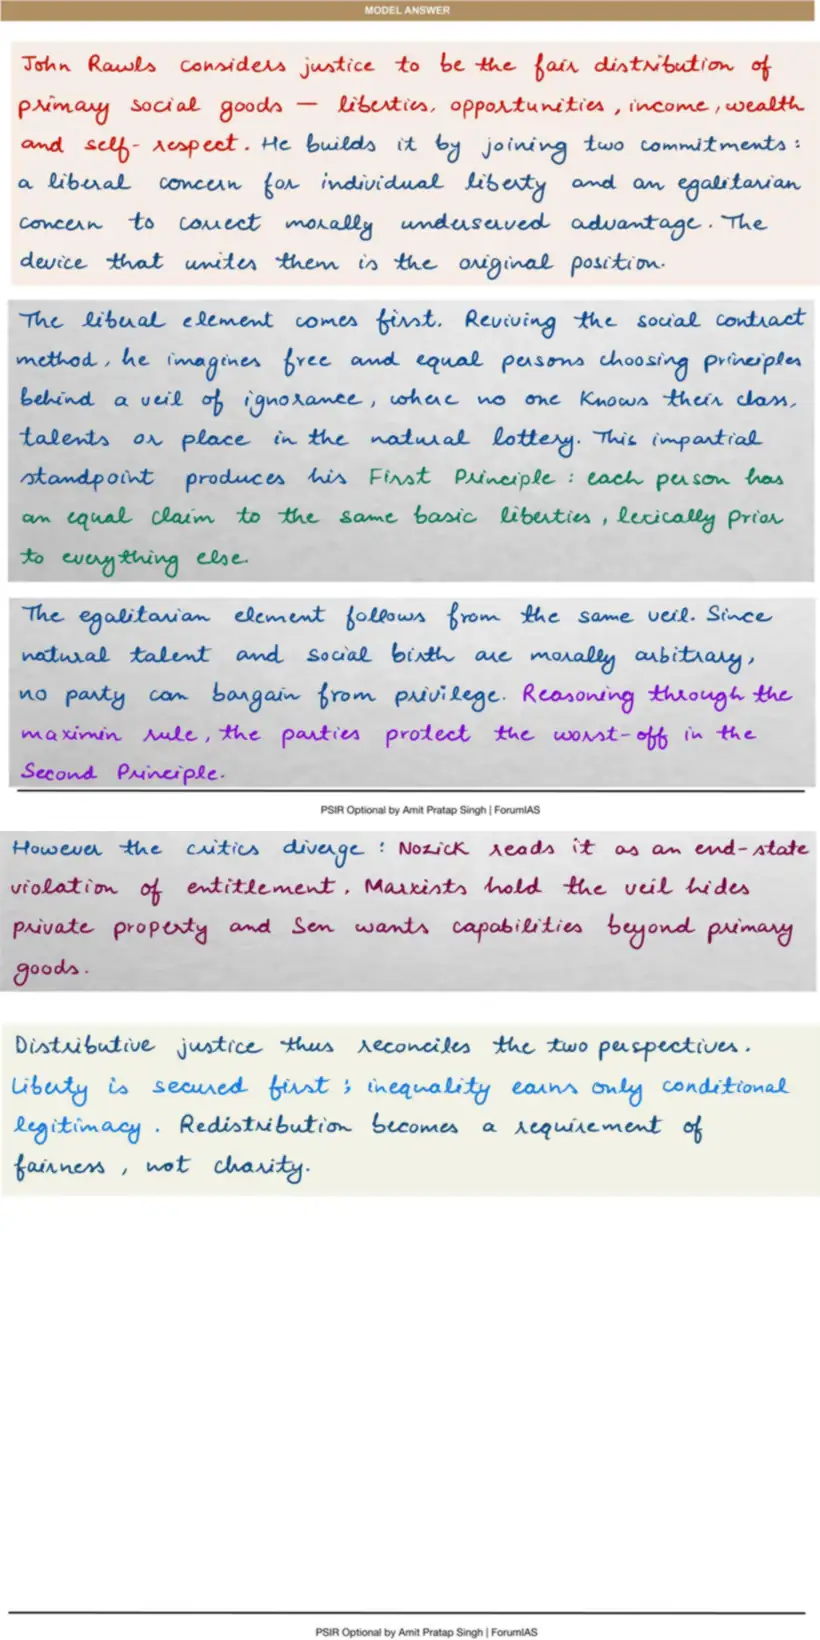 MODEL ANSWER
John Rawls considers justice to be the fair distribution of
primary social goods — liberties, opportunities, income, wealth
and self-respect. He builds it by joining two commitments:
a liberal concern for individual liberty and an egalitarian
concern to correct morally undeserved advantage. The
device that unites them is the original position.
The liberal element comes first. Reviving the social contract
method, he imagines free and equal persons choosing principles
behind a veil of ignorance, where no one knows their class,
talents or place in the natural lottery. This impartial
standpoint produces his First Principle: each person has
an equal claim to the same basic liberties, lexically prior
to everything else.
The egalitarian element follows from the same veil. Since
natural talent and social birth are morally arbitrary,
no party can bargain from privilege. Reasoning through the
maximin rule, the parties protect the worst-off in the
Second Principle.
PSIR Optional by Amit Pratap Singh | ForumIAS
However the critics diverge: Nozick reads it as an end-state
violation of entitlement. Marxists hold the veil hides
private property and Sen wants capabilities beyond primary
goods.
Distributive justice thus reconciles the two perspectives.
Liberty is secured first; inequality earns only conditional
legitimacy. Redistribution becomes a requirement of
fairness, not charity.
PSIR Optional by Amit Pratap Singh | ForumIAS